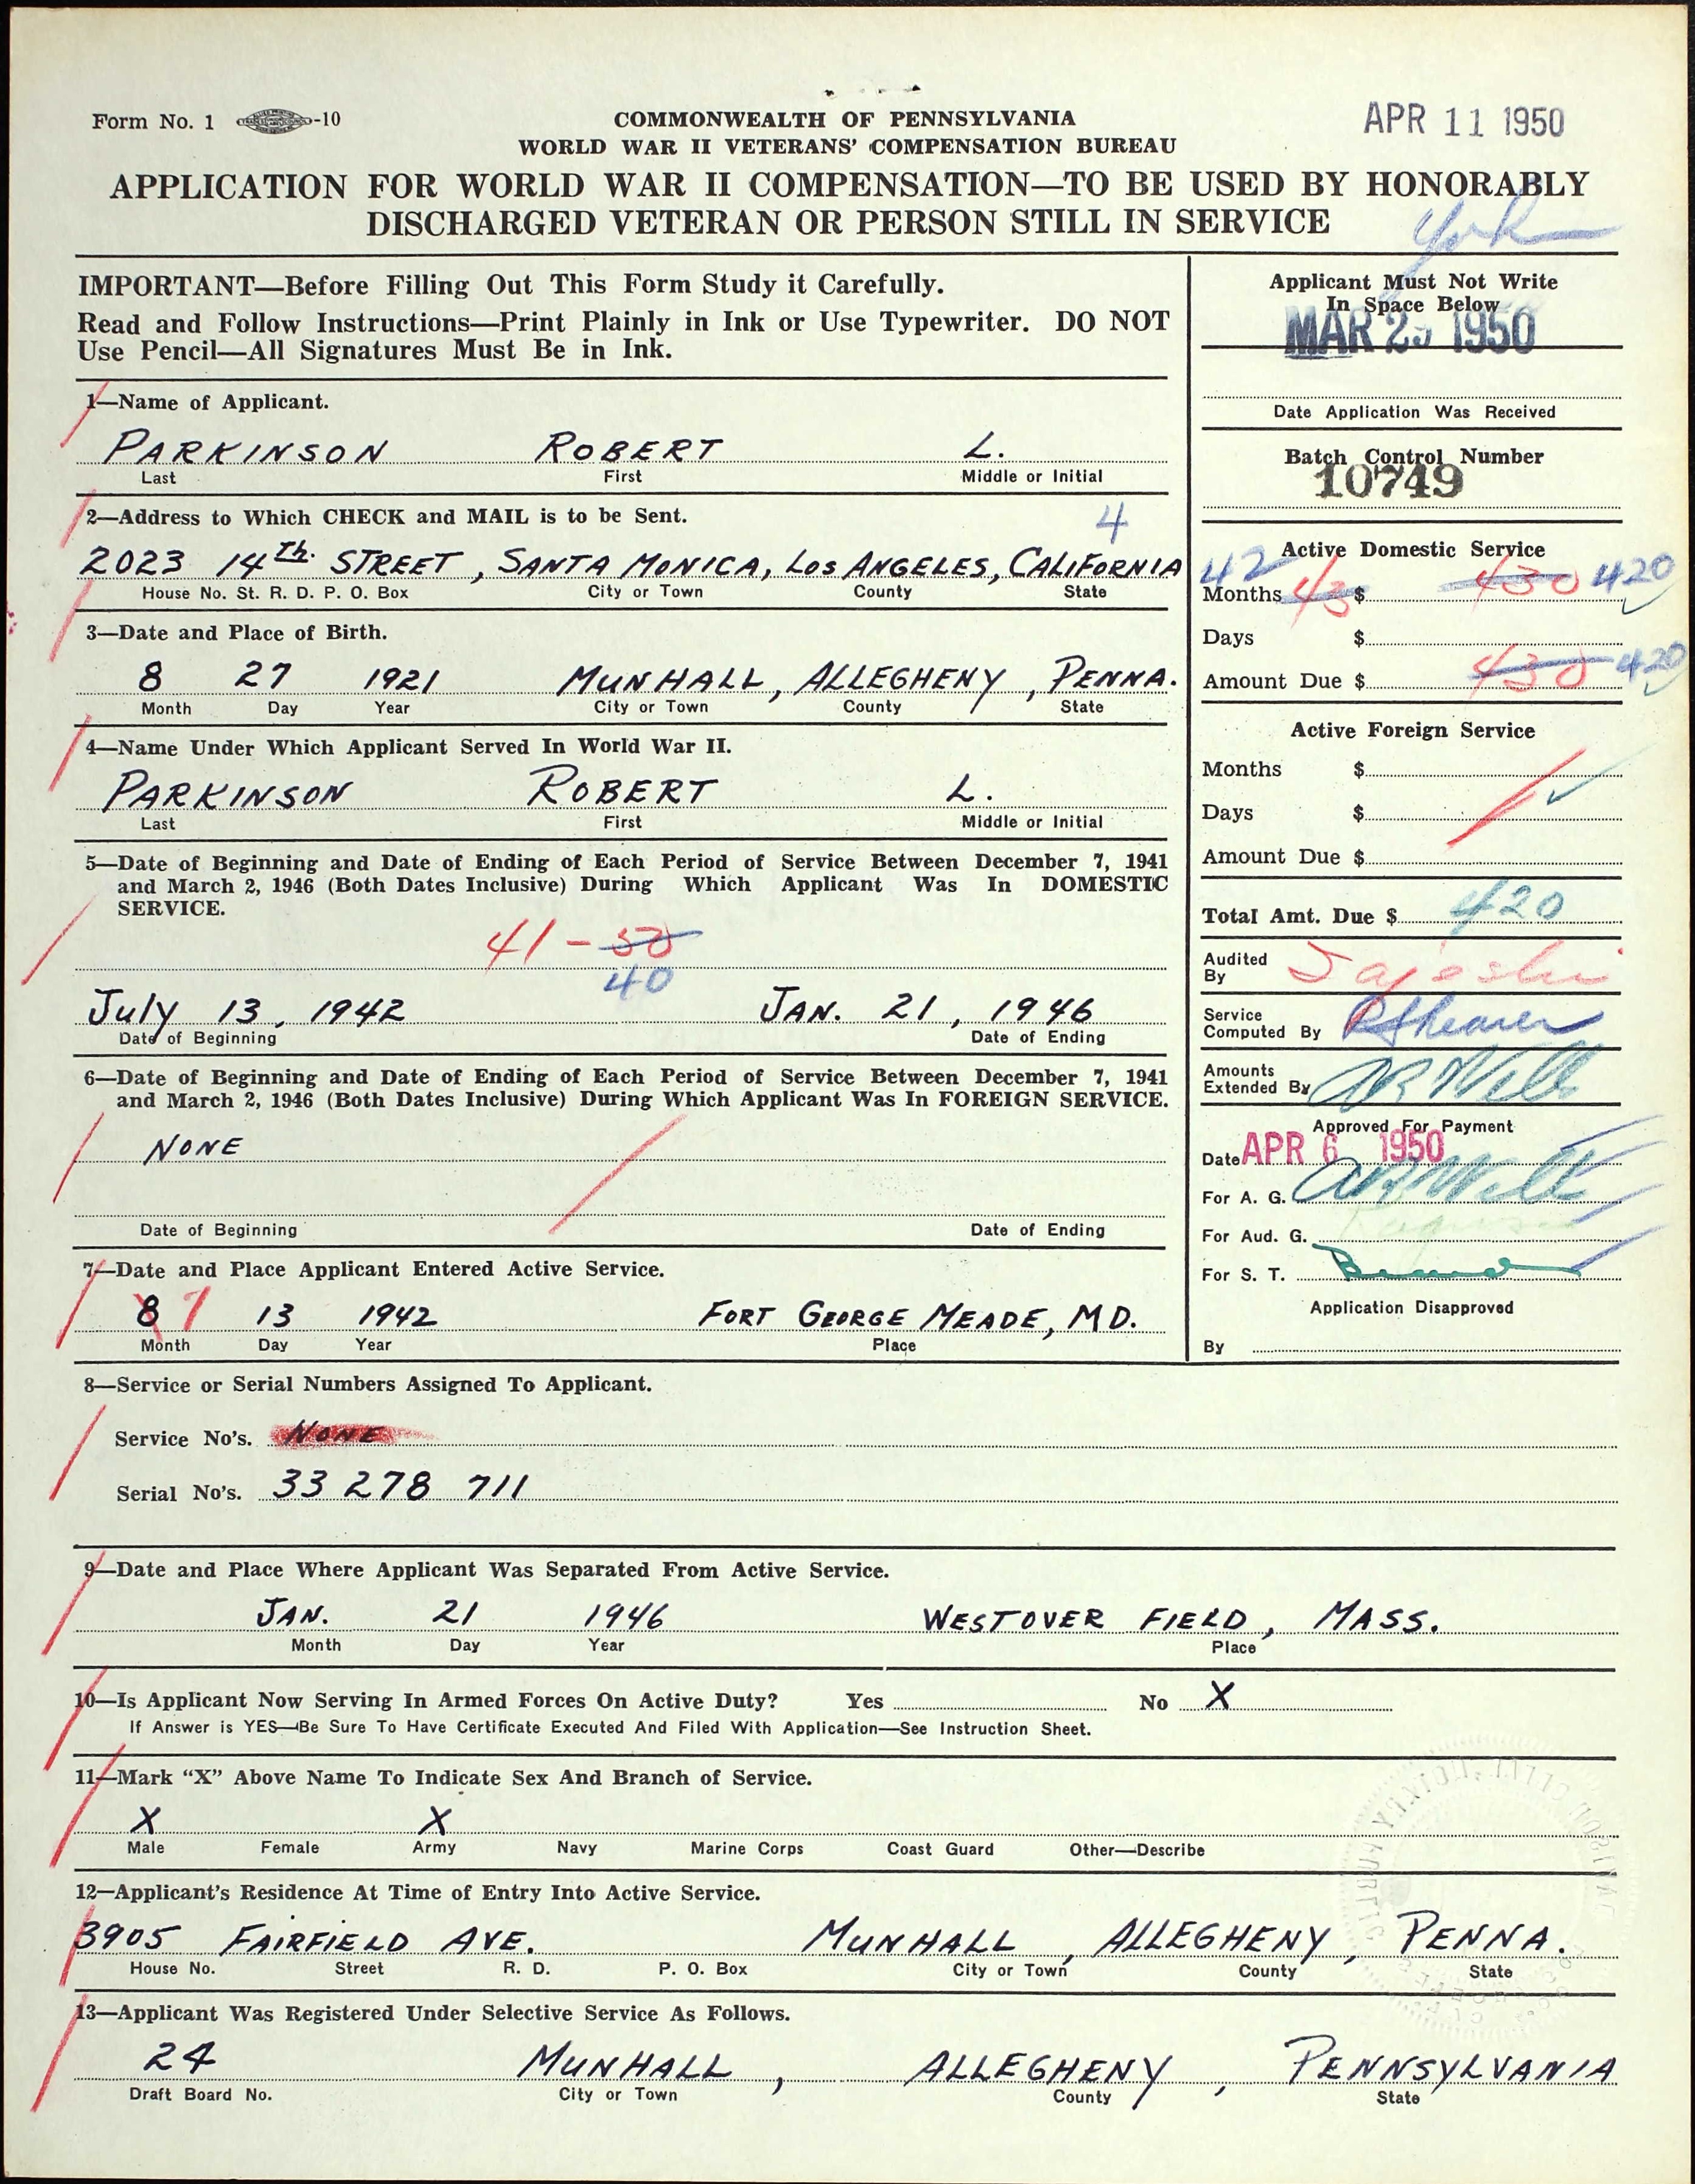 Form No. 1 -10
COMMONWEALTH OF PENNSYLVANIA
WORLD WAR II VETERANS' COMPENSATION BUREAU
APR 11 1950
APPLICATION FOR WORLD WAR II COMPENSATION—TO BE USED BY HONORABLY
DISCHARGED VETERAN OR PERSON STILL IN SERVICE
York
IMPORTANT—Before Filling Out This Form Study it Carefully.
Read and Follow Instructions—Print Plainly in Ink or Use Typewriter. DO NOT
Use Pencil—All Signatures Must Be in Ink.
1—Name of Applicant.
PARKINSON ROBERT L.
Last First Middle or Initial
2—Address to Which CHECK and MAIL is to be Sent.
4
2023 14th. STREET, SANTA MONICA, LOS ANGELES, CALIFORNIA
House No. St. R. D. P. O. Box City or Town County State
3—Date and Place of Birth.
8 27 1921 MUNHALL, ALLEGHENY, PENNA.
Month Day Year City or Town County State
4—Name Under Which Applicant Served In World War II.
PARKINSON ROBERT L.
Last First Middle or Initial
5—Date of Beginning and Date of Ending of Each Period of Service Between December 7, 1941
and March 2, 1946 (Both Dates Inclusive) During Which Applicant Was In DOMESTIC
SERVICE.
41 - 50
40
July 13, 1942 JAN. 21, 1946
Date of Beginning Date of Ending
6—Date of Beginning and Date of Ending of Each Period of Service Between December 7, 1941
and March 2, 1946 (Both Dates Inclusive) During Which Applicant Was In FOREIGN SERVICE.
NONE
Date of Beginning Date of Ending
7—Date and Place Applicant Entered Active Service.
8 7 13 1942 FORT GEORGE MEADE, MD.
Month Day Year Place
Applicant Must Not Write
In Space Below
MAR 1950
Date Application Was Received
Batch Control Number
10749
Active Domestic Service
42
Months 43 $ 430 420
Days $
Amount Due $ 430 420
Active Foreign Service
Months $
Days $
Amount Due $
Total Amt. Due $ 420
Audited
By
Service
Computed By RShearer
Amounts
Extended By
Approved For Payment
Date APR 6 1950
For A. G.
For Aud. G.
For S. T.
Application Disapproved
By
8—Service or Serial Numbers Assigned To Applicant.
Service No's. NONE
Serial No's. 33 278 711
9—Date and Place Where Applicant Was Separated From Active Service.
JAN. 21 1946 WESTOVER FIELD, MASS.
Month Day Year Place
10—Is Applicant Now Serving In Armed Forces On Active Duty? Yes No X
If Answer is YES—Be Sure To Have Certificate Executed And Filed With Application—See Instruction Sheet.
11—Mark "X" Above Name To Indicate Sex And Branch of Service.
X X
Male Female Army Navy Marine Corps Coast Guard Other—Describe
12—Applicant's Residence At Time of Entry Into Active Service.
3905 FAIRFIELD AVE. MUNHALL, ALLEGHENY, PENNA.
House No. Street R. D. P. O. Box City or Town County State
13—Applicant Was Registered Under Selective Service As Follows.
24 MUNHALL, ALLEGHENY, PENNSYLVANIA
Draft Board No. City or Town County State